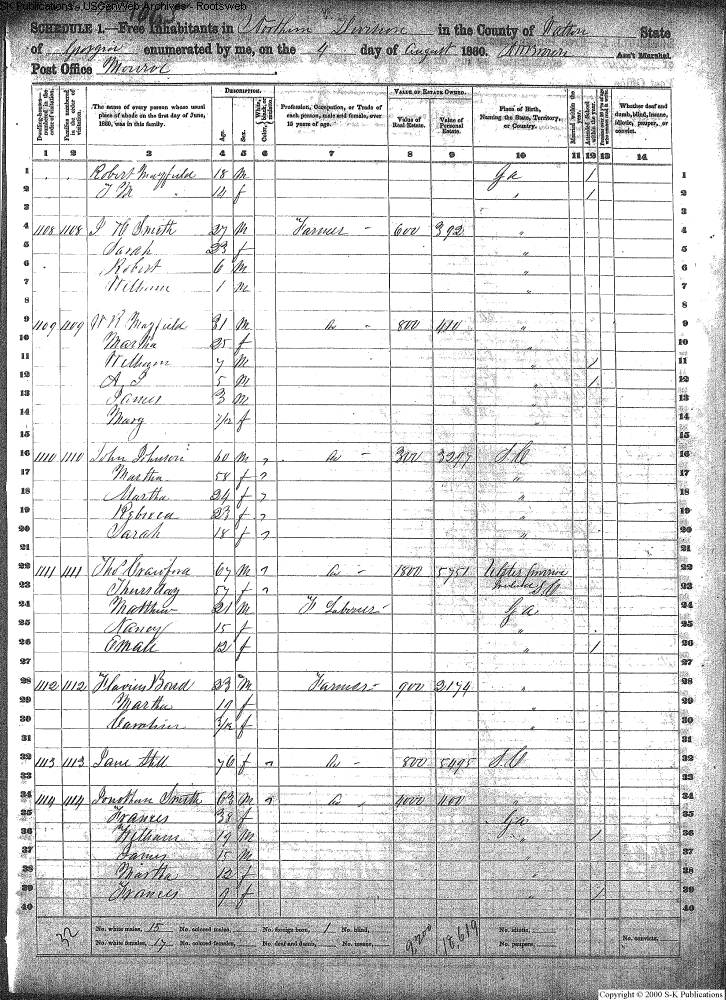 S-K Publications - USGenWeb Archives - Rootsweb
SCHEDULE 1.—Free Inhabitants in Northern Division in the County of Walton State
of Georgia enumerated by me, on the 4 day of August 1860. Ass't Marshal.
Post Office Monroe
Dwelling-houses numbered in the order of visitation.
Families numbered in the order of visitation.
The name of every person whose usual place of abode on the first day of June, 1860, was in this family.
DESCRIPTION.
Age.
Sex.
Color, White, black, or mulatto.
Profession, Occupation, or Trade of each person, male and female, over 15 years of age.
VALUE OF ESTATE OWNED.
Value of Real Estate.
Value of Personal Estate.
Place of Birth, Naming the State, Territory, or Country.
Married within the year.
Attended School within the year.
Whether deaf and dumb, blind, insane, idiotic, pauper, or convict.
1 2 3 4 5 6 7 8 9 10 11 12 13 14
1 Robert Mayfield 18 M Ga / 1
2 " 14 f " / 2
3 3
4 1108 1108 J H Smith 27 M Farmer 600 392 " 4
5 Sarah 23 f " 5
6 Robert 6 M " 6
7 William 1 M " 7
8 8
9 1109 1109 W R Mayfield 31 M Do 800 410 " 9
10 Martha 25 f " 10
11 William 7 M " / 11
12 A J 5 M " / 12
13 James 3 M " 13
14 Mary 7/12 f " 14
15 15
16 1110 1110 John Johnson 60 M Do 300 3297 S C 16
17 Martha 58 f " 17
18 Martha 24 f " 18
19 Rebecca 23 f " 19
20 Sarah 18 f " 20
21 21
22 1111 1111 Thos Crawford 67 M Do 1800 5751 22
23 Thursday 57 f S C 23
24 Matthew 21 M F Labourer Ga 24
25 Nancy 15 f " 25
26 12 f " / 26
27 27
28 1112 1112 Flavius Bond 23 M Farmer 900 2174 " 28
29 Martha 19 f " 29
30 Caroline 3/12 f " 30
31 31
32 1113 1113 Jane Still 76 f Do 800 5495 S C 32
33 33
34 1114 1114 Jonathan Smith 63 M Do 4000 1100 " 34
35 Frances 38 f Ga 35
36 William 19 M " / 36
37 James 15 M 37
38 Martha 12 f 38
39 Frances 9 f / 39
40 40
32 No. white males, 15 No. colored males, No. foreign born, 1 No. blind, 9,200 18,619 No. idiotic,
No. white females, 17 No. colored females, No. deaf and dumb, No. insane, No. paupers, No. convicts,
Copyright © 2000 S-K Publications